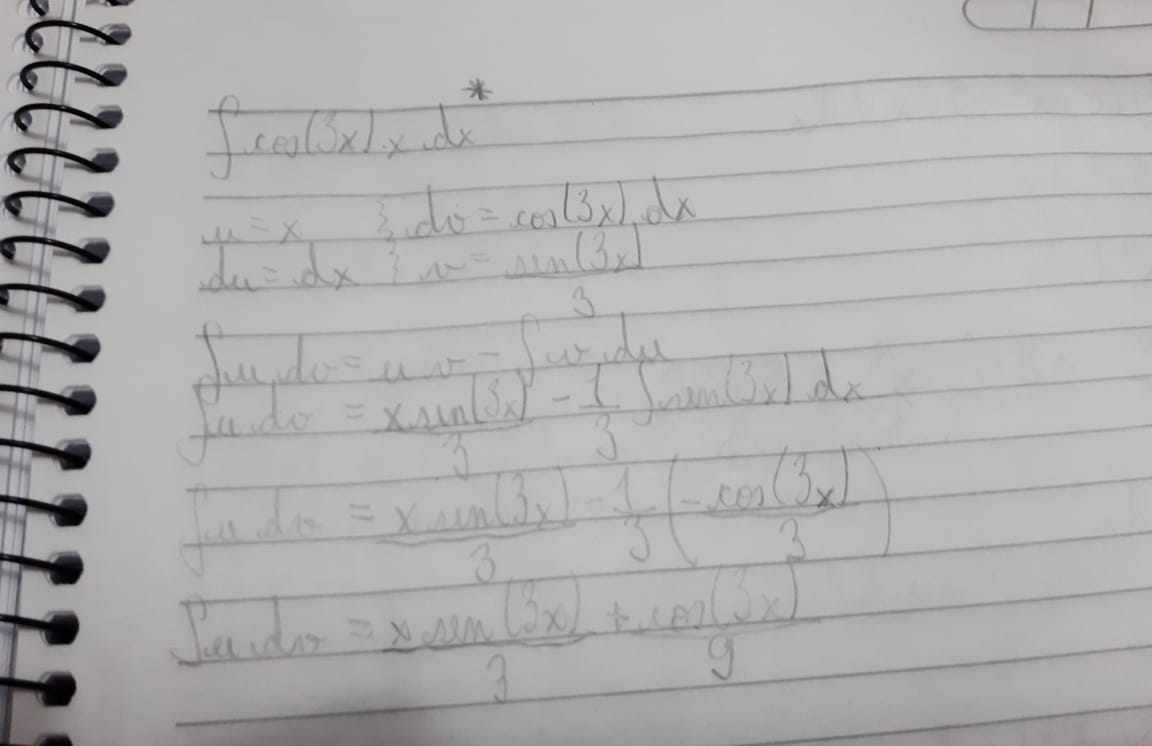 *
∫ cos(3x).x.dx
u = x } dv = cos(3x).dx
du = dx } v = sen(3x)/3
∫u.dv = u.v - ∫v.du
∫u.dv = x.sen(3x)/3 - 1/3 ∫sen(3x).dx
∫u.dv = x.sen(3x)/3 - 1/3 (-cos(3x)/3)
∫u.dv = x.sen(3x)/3 + cos(3x)/9